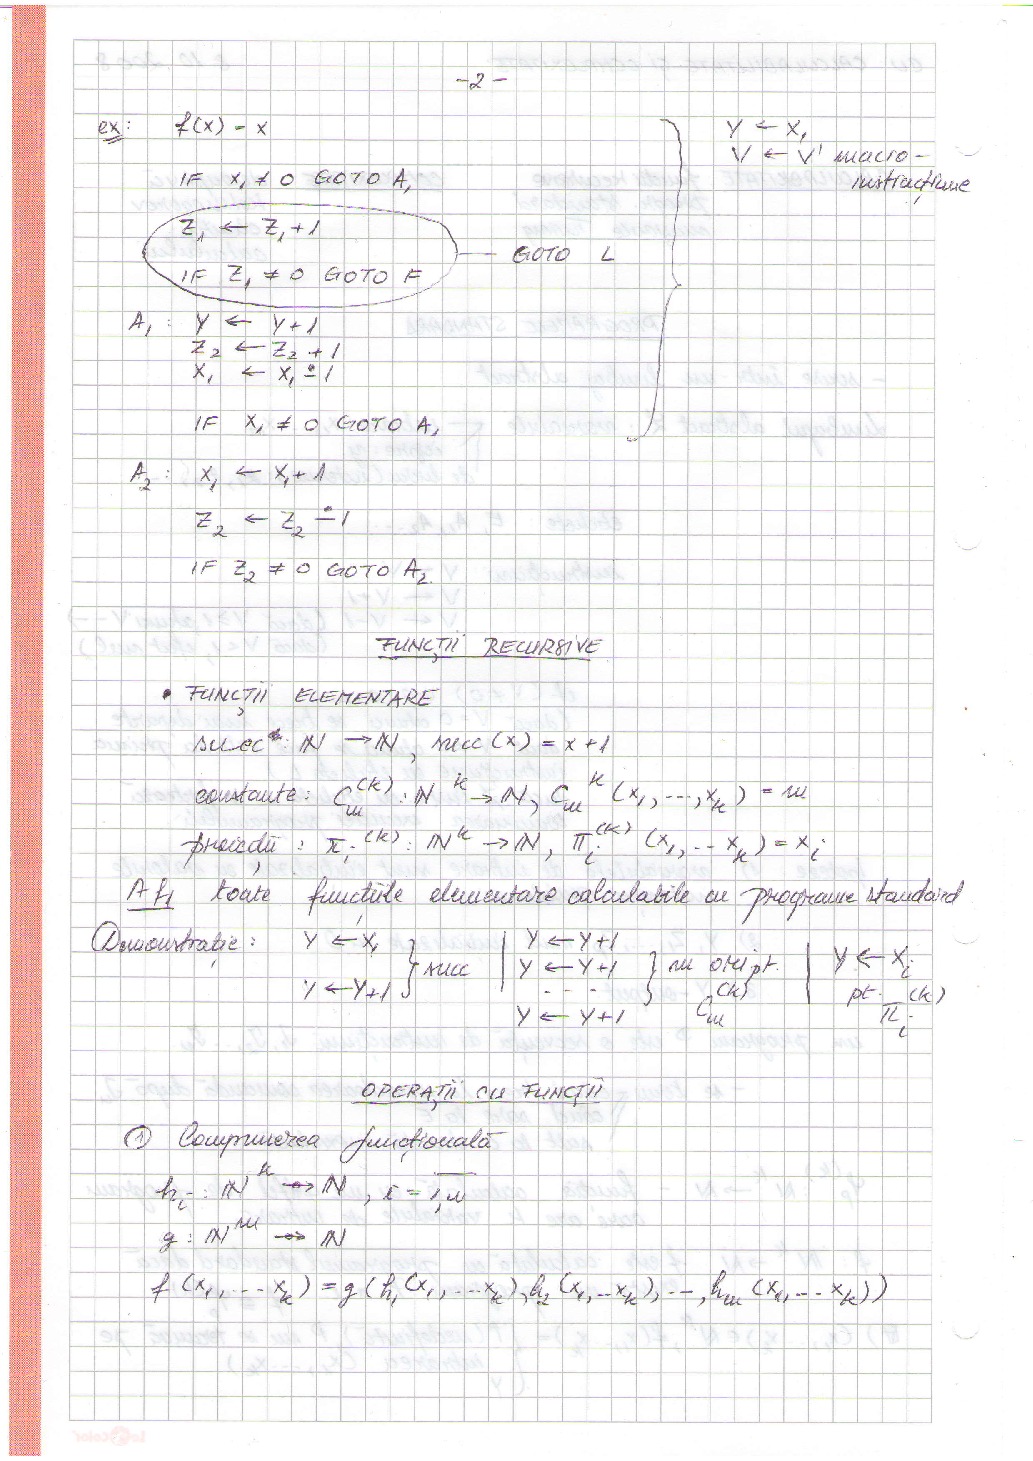 -2-
ex: f(x) = x
Y ← X₁
V ← V' macro-
instrucțiune
IF X₁ ≠ 0 GOTO A₁
Z₁ ← Z₁+1
GOTO L
IF Z₁ ≠ 0 GOTO E
A₁: Y ← Y+1
Z₂ ← Z₂+1
X₁ ← X₁ ∸ 1
IF X₁ ≠ 0 GOTO A₁
A₂: X₁ ← X₁+1
Z₂ ← Z₂ ∸ 1
IF Z₂ ≠ 0 GOTO A₂
FUNCȚII RECURSIVE
• FUNCȚII ELEMENTARE
succ : ℕ → ℕ, succ(x) = x+1
constante: C_m^(k) : ℕ^k → ℕ, C_m^k (x₁, ..., x_k) = m
proiecții : π_i^(k) : ℕ^k → ℕ, π_i^(k) (x₁, .. x_k) = x_i
Af₁ toate funcțiile elementare calculabile cu programe standard
Demonstrație: Y ← X₁ | Y ← Y+1 | Y ← X_i
Y ← Y+1 } succ | Y ← Y+1 } m ori pt. C_m^(k) | pt. π_i^(k)
- - -
Y ← Y+1
OPERAȚII CU FUNCȚII
① Compunerea funcțională
h_i : ℕ^k → ℕ, i = 1,m
g : ℕ^m → ℕ
f(x₁, ... x_k) = g(h₁(x₁, ... x_k), h₂(x₁, .. x_k), ..., h_m(x₁, ... x_k))